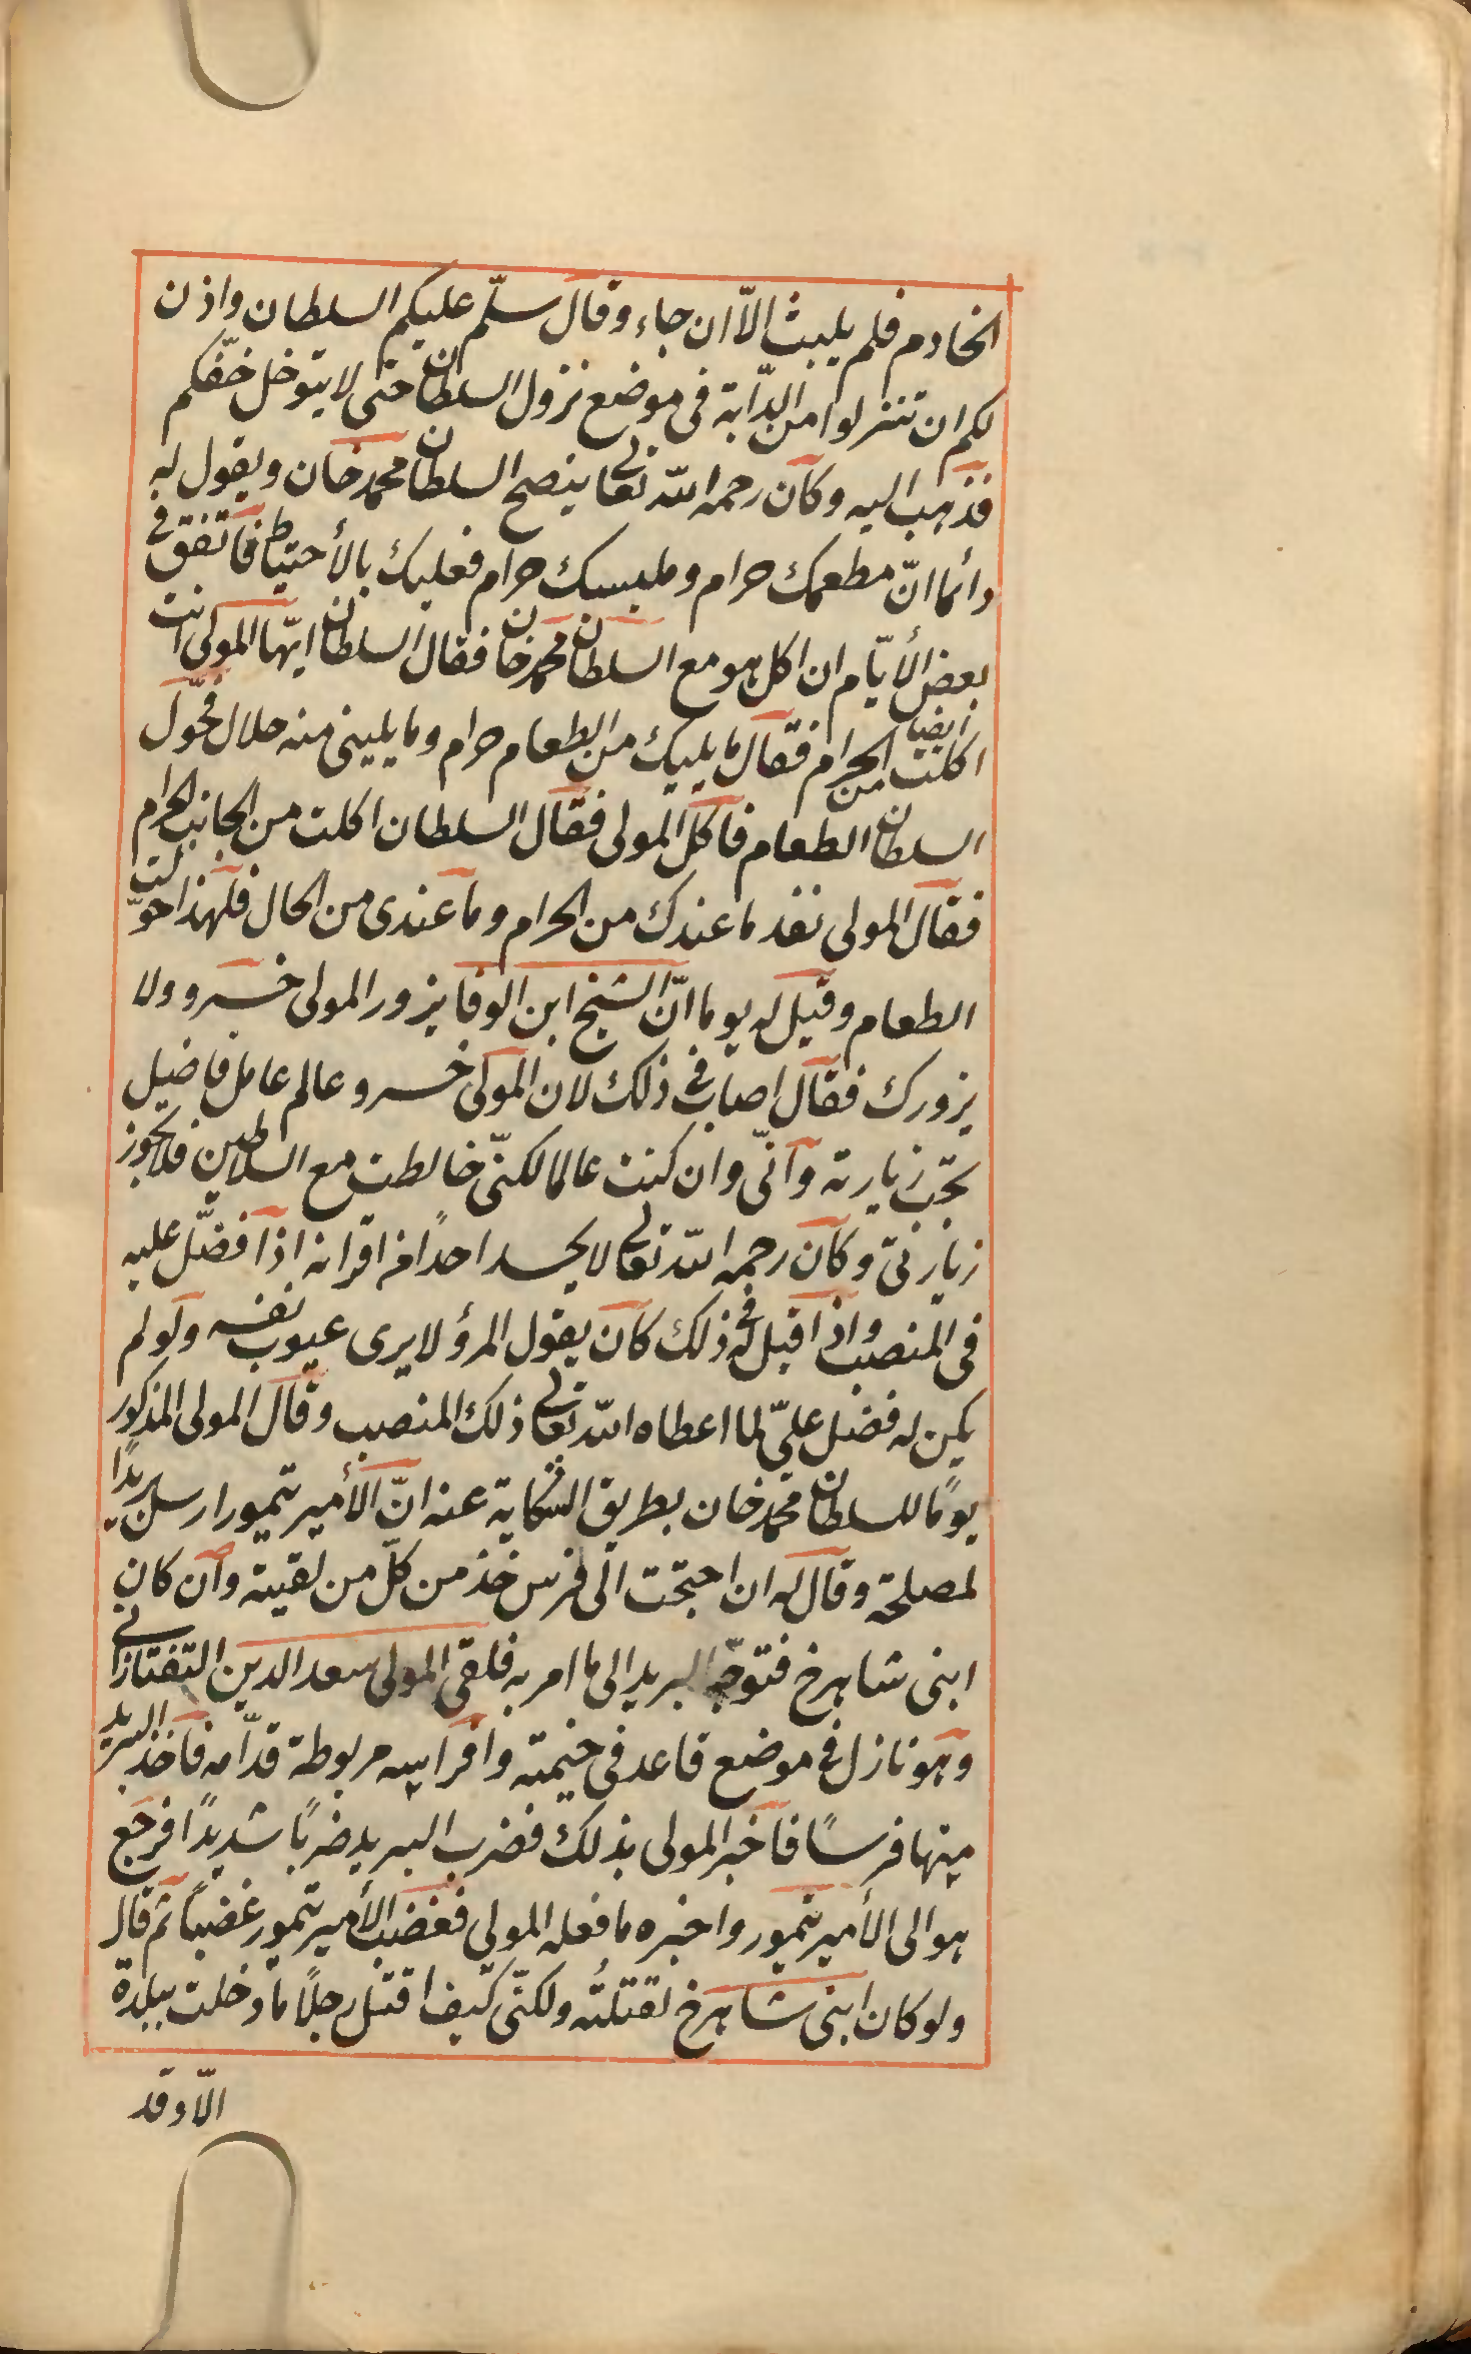 الخادم فلم يلبث الّا ان جاء وقال سلّم عليكم السلطان واذن
لكم ان تنزلوا من الدّابة فى موضع نزول السلطان حتى لا يتوحل خفّكم
فذهب اليه وكان رحمه الله تعالى ينصح السلطان محمد خان ويقول له
دائما انّ مطعمك حرام وملبسك حرام فعليك بالأحتياط فاتفق فى
بعض الأيّام ان اكل هو مع السلطان محمد خان فقال السلطان ايّها المولى انت
ايضا اكلت من الحرام فقال ما يليك من الطعام حرام وما يلينى منه حلال فحوّل
السلطان الطعام فاكل المولى فقال السلطان اكلت من الجانب الحرام
فقال المولى نفد ما عندك من الحرام وما عندى من الحلال فلهذا حوّلت
الطعام وقيل له يوما انّ الشيخ ابن الوفا يزور المولى خسرو ولا
يزورك فقال اصاب فى ذلك لان المولى خسرو عالم عامل فاضيل
تجب زيارته وانّى وان كنت عالما لكنّى خالطت مع السلاطين فلا يجوز
زيارتى وكان رحمه الله تعالى لا يحسد احدًا من اقرانه اذا فضّل عليه
فى المنصب واذا قيل له فى ذلك كان يقول المرؤ لا يرى عيوب نفسه ولو لم
يكن له فضل علىّ لما اعطاه الله تعالى ذلك المنصب وقال المولى المذكور
يومًا للسلطان محمد خان بطريق الشكاية عنه انّ الأمير تيمور ارسل بريدًا
لمصلحة وقال له ان احتجت الى فرس خذ من كلّ من لقيته وان كان
ابنى شاهرخ فتوجّه البريد الى ما امر به فلقى المولى سعد الدين التفتازانى
وهو نازل فى موضع قاعد فى خيمته وافراسه مربوطة قدّامه فاخذ البريد
منها فرسًا فاخبر المولى بذلك فضرب البريد ضربًا شديدًا فرجع
هو الى الأمير تيمور واخبره ما فعله المولى فغضب الأمير تيمور غضبًا ثم قال
ولو كان ابنى شاهرخ لقتلتُه ولكنّى كيف اقتل رجلًا ما دخلت ببلدة
الّا وقد